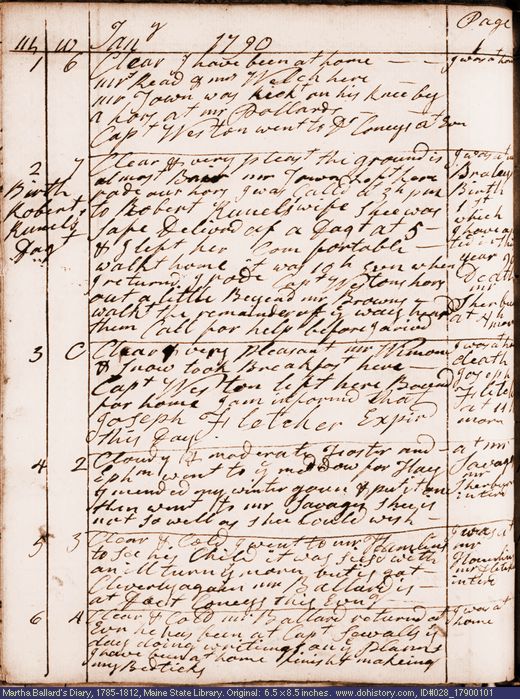 Page
m w Jany 1790
1 6 Clear I have been at home —
mr Read & mr Welch here
mr Town was kickt on his knee by
a hors at mr Pollards
Capt Weston went to Dr Coneys at Evn
I was at home
2 7 Clear & very pleast the ground is
almost Bare mr Town left here
rode our hors I was Calld at 3h pm
to Robert Kunels wife Shee was
safe Delivd of a Dagt at 5
& I left her Comfortable —
walkt home it was 10h Evn when
I returnd I rode Capt Westons hors
out a little Beyond mr Browns &
walkt the remainder of ye way heard
them Call for help before I arivd
Birth
Robert
Kunels
Dagt
I was at
Birth
1st
which
I have at
this
year
Death
mr
at 4h
3 C Clear & very pleasant mr
& Snow took Breakfast here —
Capt Weston left here Bound
for home I am informd that
Joseph Fletcher Expird
this Day
I was at home
death
Joseph
Fletch
at 11h
morn
4 2 Cloudy & moderate Foster and
Ephm went to ye meddow for Hay
I mended my winter gown & put it on
then went to mr Savages Shee is
not so well as shee could wish —
at mr
Savages
mr
5 3 Clear & Cold I went to mr Hamlins
to see her Child it was siesd with
an ill turn ys morn but is got
Cleverly again mr Ballard is —
at Doct Coneys this Evng
I was at
mr
Hamlins
6 4 Clear & Cold mr Ballard returnd at
Evn he has been at Capt Sewalls ys
day doing writings any Planns
I have been at home finisht makeing
my Bedticks
I was at
home
Martha Ballard's Diary, 1785-1812, Maine State Library. Original: 6.5 x 8.5 inches. www.dohistory.org, ID#028_17900101